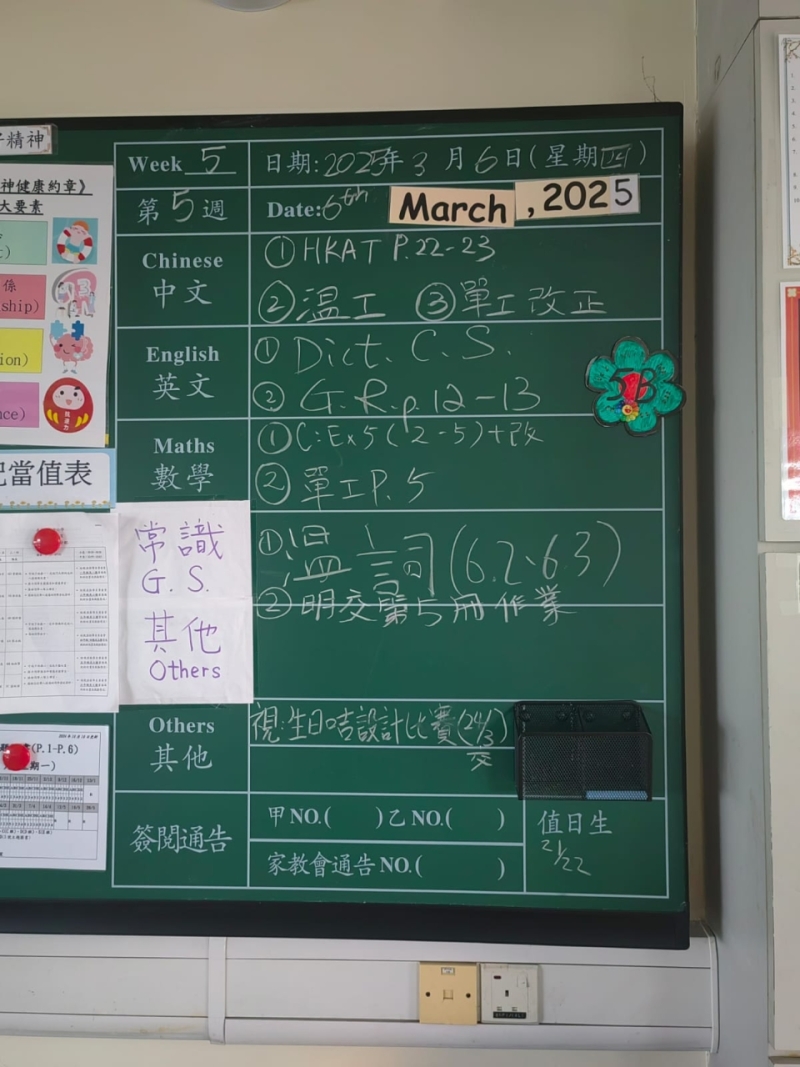 精神
Week 5
日期: 2025年 3 月 6 日 (星期四)
第 5 週
Date: 6th March , 2025
神健康約章》
大要素
係
ship)
ion)
nce)
Chinese
中文
① HKAT P.22-23
② 溫工 ③ 單工改正
English
英文
① Dict. C. S.
② G.R.p.12-13
Maths
數學
① C: Ex 5 (2-5)+改
② 單工P.5
5B
當值表
常識
G.S.
其他
Others
① 溫詞(6.2-6.3)
② 明交第5冊作業
Others
其他
視:生日咭設計比賽(24/3)
交
(P.1-P.6)
期一)
簽閱通告
甲 NO.( ) 乙 NO.( )
家教會通告 NO.( )
值日生
21/22